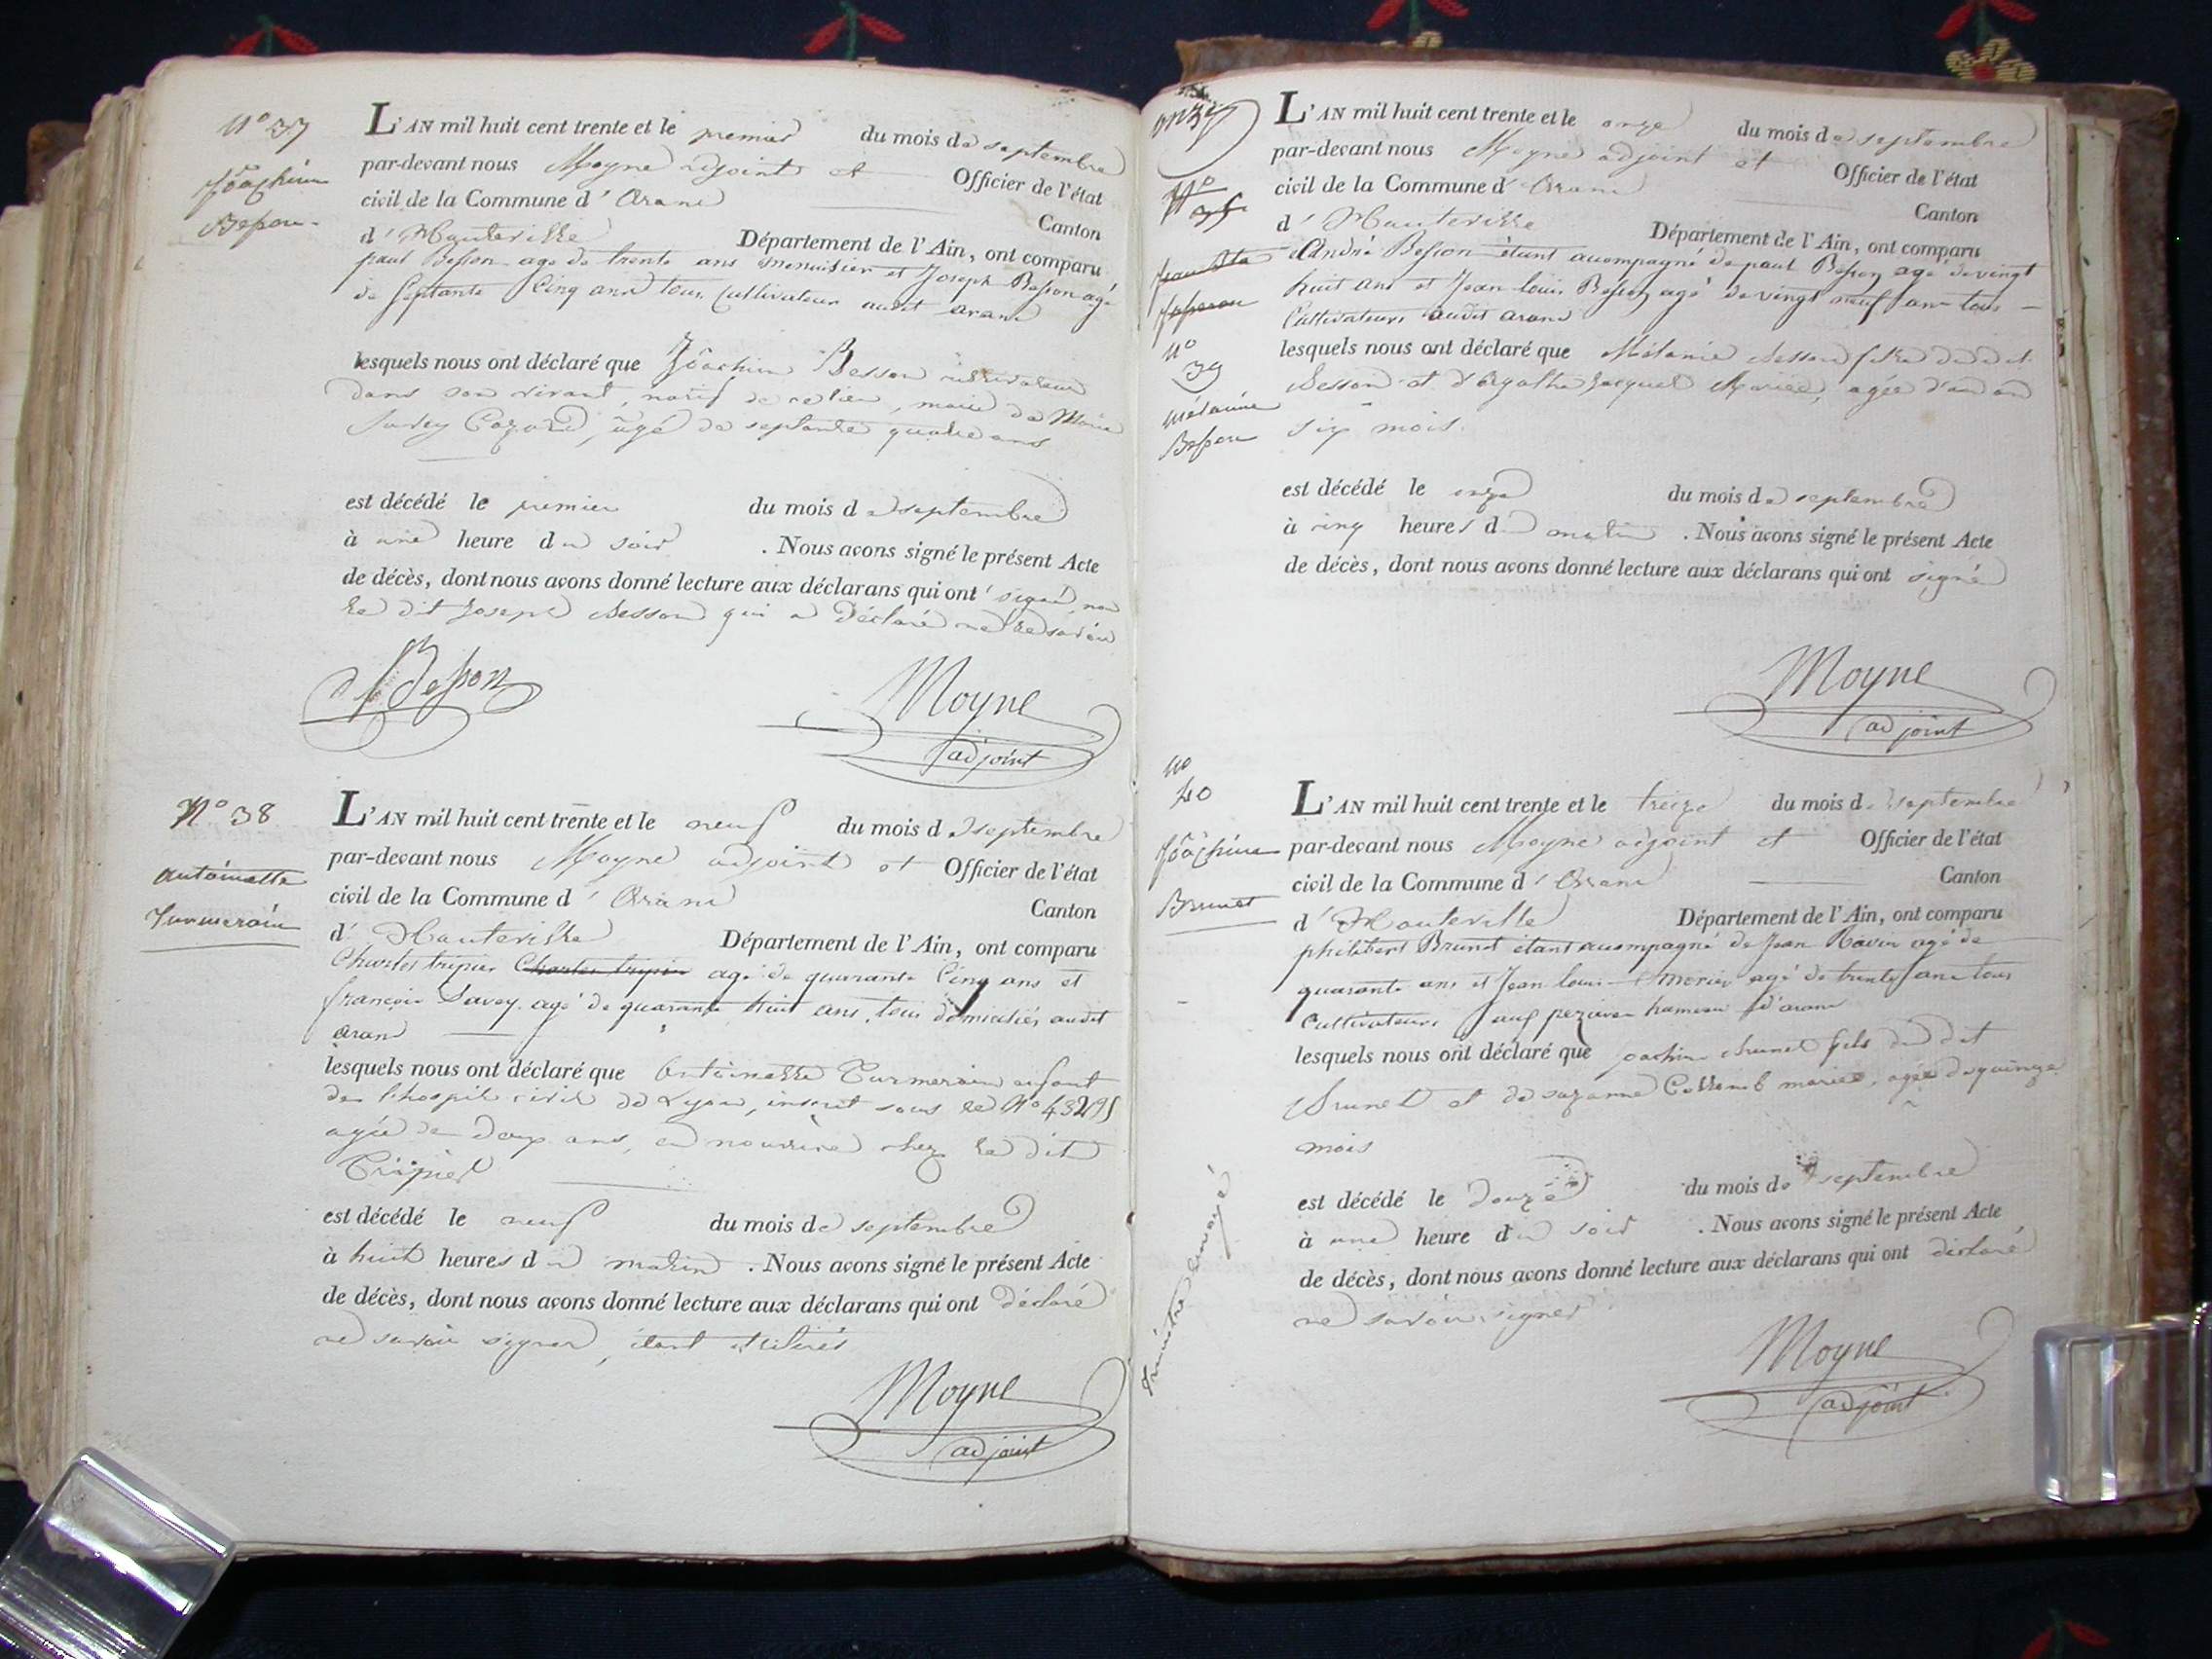 N° 37
Joâchim
Besson
L'AN mil huit cent trente et le premier du mois de septembre
par-devant nous Moyne adjoint et Officier de l'état
civil de la Commune d'Aranc
Canton
d'Hauteville Département de l'Ain, ont comparu
paul Besson age de trente ans menuisier et Joseph Besson agé
de septante Cinq ans tous Cultivateur audit aranc
lesquels nous ont déclaré que Joâchim Besson cultivateur
dans son vivant, natif de ce lieu, marié de Marie
Savey , âgé de septante quatre ans
est décédé le premier du mois de septembre
à une heure du soir . Nous avons signé le présent Acte
de décès, dont nous avons donné lecture aux déclarans qui ont signé non
le dit Joseph Besson qui a Déclaré ne le savoir
Besson
Moyne
adjoint
N° 38
antoinette
Turmerain
L'AN mil huit cent trente et le neuf du mois de septembre
par-devant nous Moyne adjoint et Officier de l'état
civil de la Commune d'Aranc
Canton
d'Hauteville Département de l'Ain, ont comparu
Charles tripier Charles tripier agé de quarante Cinq ans et
françois Savey agé de quarante huit ans, tous domiciliés audit
aranc
lesquels nous ont déclaré que Antoinette Turmerain enfant
de l'hospice civil de Lyon, inscrit sous le N° 43295
agée de deux ans, en nourrice chez le dit
Tripier
est décédé le neuf du mois de septembre
à huit heures du matin . Nous avons signé le présent Acte
de décès, dont nous avons donné lecture aux déclarans qui ont déclaré
ne savoir signer,
Moyne
adjoint
onze
N°
N°
39
mélanie
Besson
L'AN mil huit cent trente et le onze du mois de septembre
par-devant nous Moyne adjoint et Officier de l'état
civil de la Commune d'Aranc
Canton
d'Hauteville Département de l'Ain, ont comparu
André Besson étant accompagné de paul Besson agé de vingt
huit ans et Jean louis Besson agé de vingt neuf ans tous
Cultivateurs audit aranc
lesquels nous ont déclaré que Mélanie Besson fille du dit
Besson et d'Agathe Jacquet Mariés, agée d'un an
six mois.
est décédé le onze du mois de septembre
à cinq heures du matin . Nous avons signé le présent Acte
de décès, dont nous avons donné lecture aux déclarans qui ont signé
Moyne
adjoint
N°
40
Joâchim
Brunet
L'AN mil huit cent trente et le treize du mois de septembre
par-devant nous Moyne adjoint et Officier de l'état
civil de la Commune d'Aranc
Canton
d'Hauteville Département de l'Ain, ont comparu
philibert Brunet étant accompagné de Jean Ravin agé de
quarante ans et Jean louis morier agé de trente ans tous
Cultivateurs aux hameau d'aranc
lesquels nous ont déclaré que joachim Brunet fils du dit
Brunet et de suzanne Collomb mariés, agée de quinze
mois
est décédé le douze du mois de septembre
à une heure du soir . Nous avons signé le présent Acte
de décès, dont nous avons donné lecture aux déclarans qui ont déclaré
ne savoir signer
Moyne
adjoint